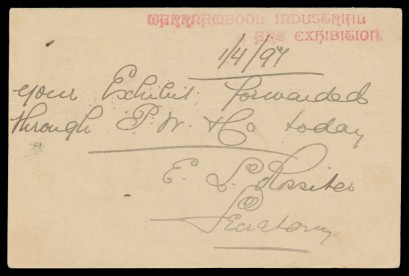 WARRNAMBOOL INDUSTRIAL
ART EXHIBITION
1/4/97
Your Exhibit forwarded
through P. W. & Co today
E. L. Rossiter
Secretary